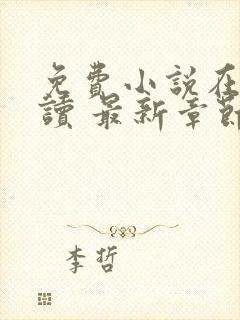 免費小說在
讀 最新章節
李哲